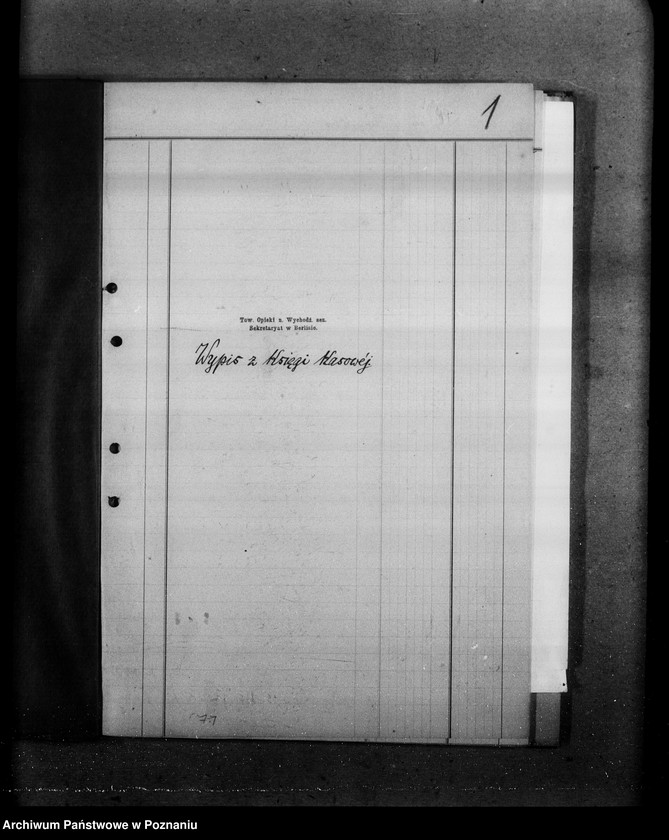 1
Tow. Opieki n. Wychodź. sez.
Sekretaryat w Berlinie.
Wypis z Księgi Kasowéj
77
Archiwum Państwowe w Poznaniu